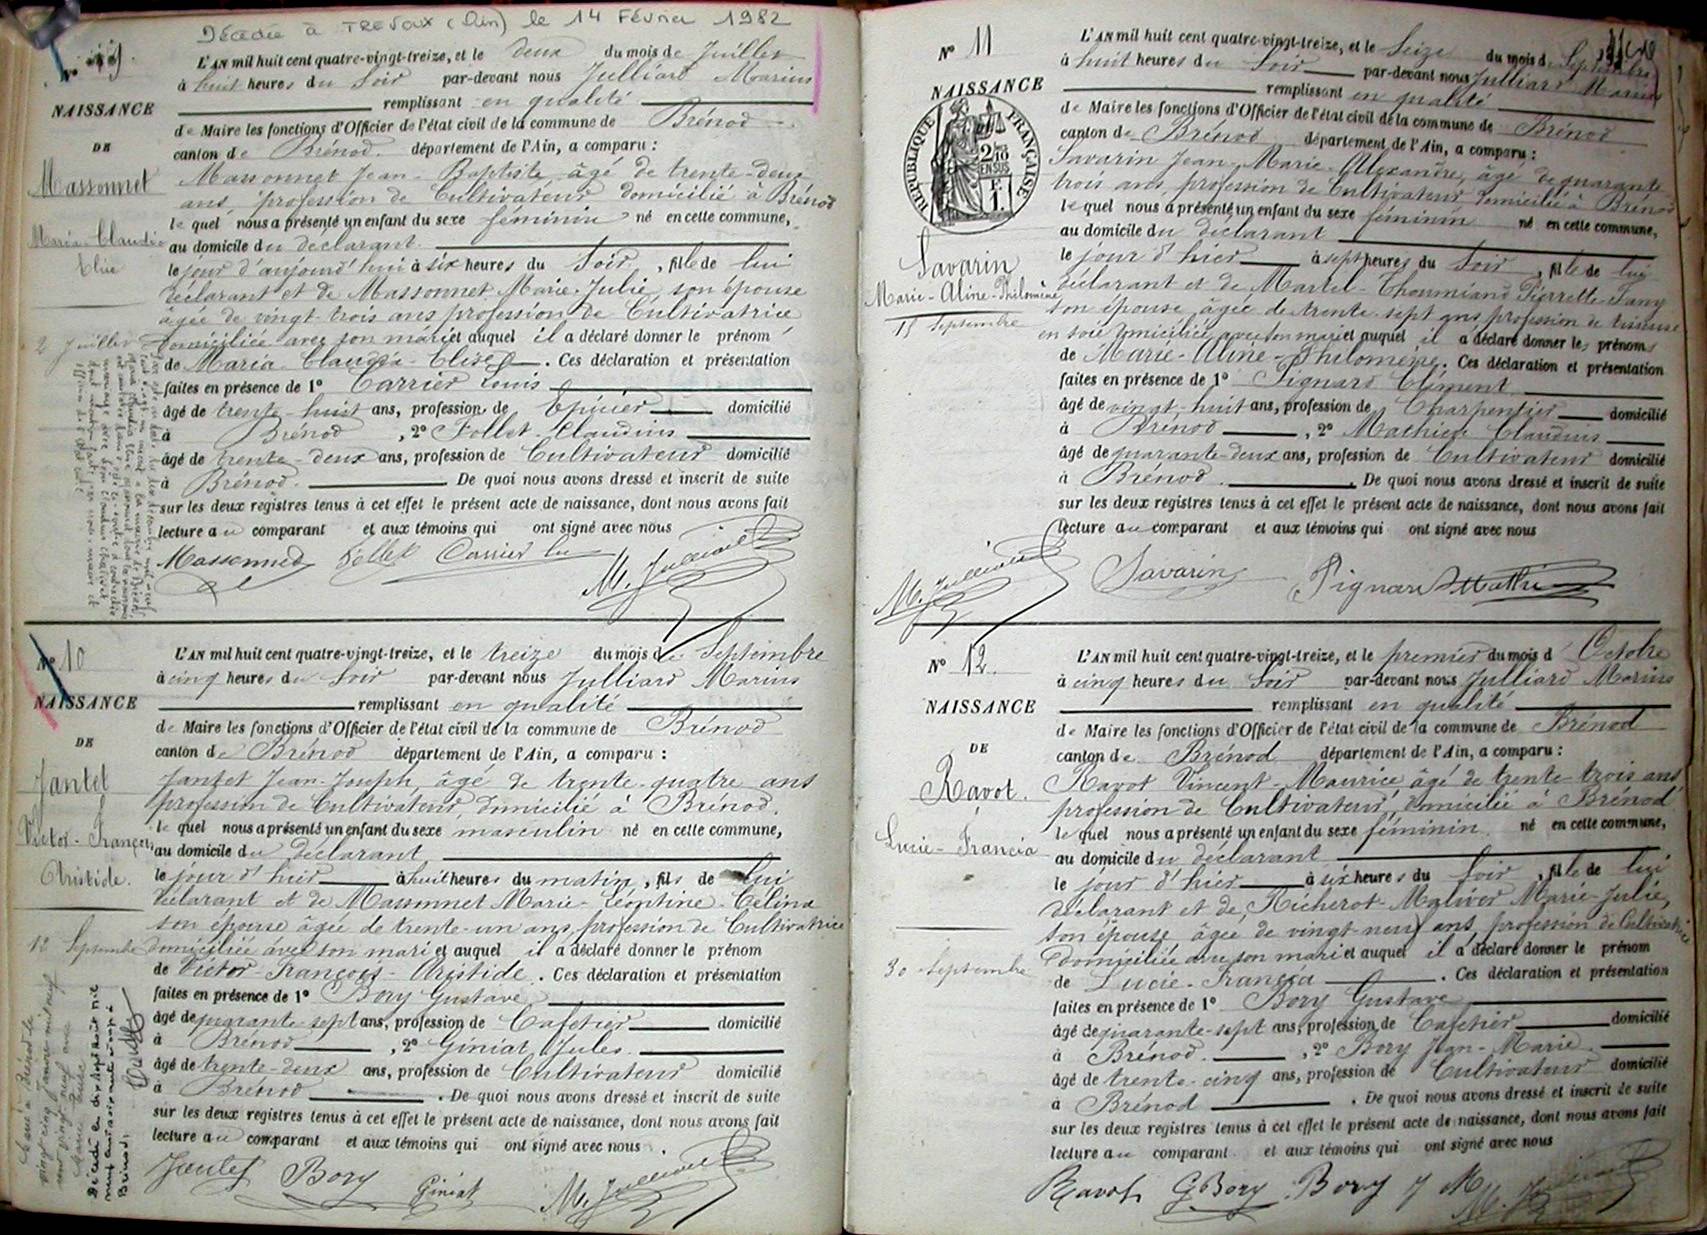 Décédée à TREVOUX (Ain) le 14 Février 1982
N° 9.
NAISSANCE
DE
Massonnet
Maria-Claudia
Elise
2 Juillet
L'AN mil huit cent quatre-vingt-treize, et le deux du mois de Juillet
à huit heures du soir par-devant nous Julliard Marius
remplissant en qualité
de Maire les fonctions d'Officier de l'état civil de la commune de Brénod
canton de Brénod. département de l'Ain, a comparu :
Massonnet Jean-Baptiste âgé de trente-deux
ans, profession de Cultivateur domicilié à Brénod
le quel nous a présenté un enfant du sexe féminin né en cette commune,
au domicile du déclarant
le jour d'aujourd'hui à six heures du soir, fille de lui
déclarant et de Massonnet Marie-Julie, son épouse
âgée de vingt-trois ans profession de Cultivatrice
domiciliée avec son mari et auquel il a déclaré donner le prénom
de Maria Claudia-Elise. Ces déclaration et présentation
faites en présence de 1° Carrier Louis
âgé de trente-huit ans, profession de Epicier domicilié
à Brénod, 2° Follet Claudius
âgé de trente-deux ans, profession de Cultivateur domicilié
à Brénod. De quoi nous avons dressé et inscrit de suite
sur les deux registres tenus à cet effet le présent acte de naissance, dont nous avons fait
lecture au comparant et aux témoins qui ont signé avec nous
Massonnet Follet Carrier Lu M. Julliard
N° 10
NAISSANCE
DE
Jantet
Victor-François
Aristide.
12 Septembre
L'AN mil huit cent quatre-vingt-treize, et le treize du mois de Septembre
à cinq heures du soir par-devant nous Julliard Marius
remplissant en qualité
de Maire les fonctions d'Officier de l'état civil de la commune de Brénod
canton de Brénod département de l'Ain, a comparu :
Jantet Jean-Joseph, âgé de trente-quatre ans
profession de Cultivateur, domicilié à Brénod.
le quel nous a présenté un enfant du sexe masculin né en cette commune,
au domicile du déclarant
le jour d'hier à huit heures du matin, fils de lui
déclarant et de Massonnet Marie-Léontine-Célina
son épouse âgée de trente-un ans, profession de Cultivatrice
domiciliée avec son mari et auquel il a déclaré donner le prénom
de Victor-François-Aristide. Ces déclaration et présentation
faites en présence de 1° Bory Gustave
âgé de quarante-sept ans, profession de Cafetier domicilié
à Brénod, 2° Giniat Jules.
âgé de trente-deux ans, profession de Cultivateur domicilié
à Brénod. De quoi nous avons dressé et inscrit de suite
sur les deux registres tenus à cet effet le présent acte de naissance, dont nous avons fait
lecture au comparant et aux témoins qui ont signé avec nous.
Jantet Bory Giniat M. Julliard
Marié à Brénod le
vingt cinq Janvier mil neuf
cent vingt neuf avec
Décédé le dix sept Août mil
neuf cent soixante
Brénod.
N° 11
NAISSANCE
RÉPUBLIQUE FRANÇAISE
2/10 EN SUS
1 F.
Savarin
Marie-Aline-Philomène
15 Septembre
L'AN mil huit cent quatre-vingt-treize, et le Seize du mois d Septembre
à huit heures du soir par-devant nous Julliard Marius
remplissant en qualité
de Maire les fonctions d'Officier de l'état civil de la commune de Brénod
canton de Brénod département de l'Ain, a comparu :
Savarin Jean-Marie-Alexandre, âgé de quarante
trois ans profession de Cultivateur domicilié à Brénod
le quel nous a présenté un enfant du sexe féminin né en cette commune,
au domicile du déclarant
le jour d'hier à sept heures du soir, fille de lui
déclarant et de Martel-Thoumiand Pierrette-Fany
son épouse âgée de trente-sept ans profession de tisseuse
en soie domiciliée avec son mari et auquel il a déclaré donner les prénoms
de Marie-Aline-Philomène. Ces déclaration et présentation
faites en présence de 1° Pignard Clément
âgé de vingt-huit ans, profession de Charpentier domicilié
à Brénod, 2° Mathieu Claudius
âgé de quarante-deux ans, profession de Cultivateur domicilié
à Brénod. De quoi nous avons dressé et inscrit de suite
sur les deux registres tenus à cet effet le présent acte de naissance, dont nous avons fait
lecture au comparant et aux témoins qui ont signé avec nous
M. Julliard Savarin Pignard Mathieu
N° 12.
NAISSANCE
DE
Ravot.
Lucie-Francia
30 Septembre
L'AN mil huit cent quatre-vingt-treize, et le premier du mois d Octobre
à cinq heures du soir par-devant nous Julliard Marius
remplissant en qualité
de Maire les fonctions d'Officier de l'état civil de la commune de Brénod
canton de Brénod département de l'Ain, a comparu :
Ravot Vincent-Maurice âgé de trente-trois ans
profession de Cultivateur, domicilié à Brénod
le quel nous a présenté un enfant du sexe féminin né en cette commune,
au domicile du déclarant
le jour d'hier à six heures du soir, fille de lui
déclarant et de Richerot-Malivor Marie-Julie,
son épouse âgée de vingt-neuf ans, profession de Cultivatrice
domiciliée avec son mari et auquel il a déclaré donner le prénom
de Lucie-Francia. Ces déclaration et présentation
faites en présence de 1° Bory Gustave
âgé de quarante-sept ans, profession de Cafetier domicilié
à Brénod., 2° Bory Jean-Marie.
âgé de trente-cinq ans, profession de Cultivateur domicilié
à Brénod. De quoi nous avons dressé et inscrit de suite
sur les deux registres tenus à cet effet le présent acte de naissance, dont nous avons fait
lecture au comparant et aux témoins qui ont signé avec nous
Ravot G Bory Bory J M M. J